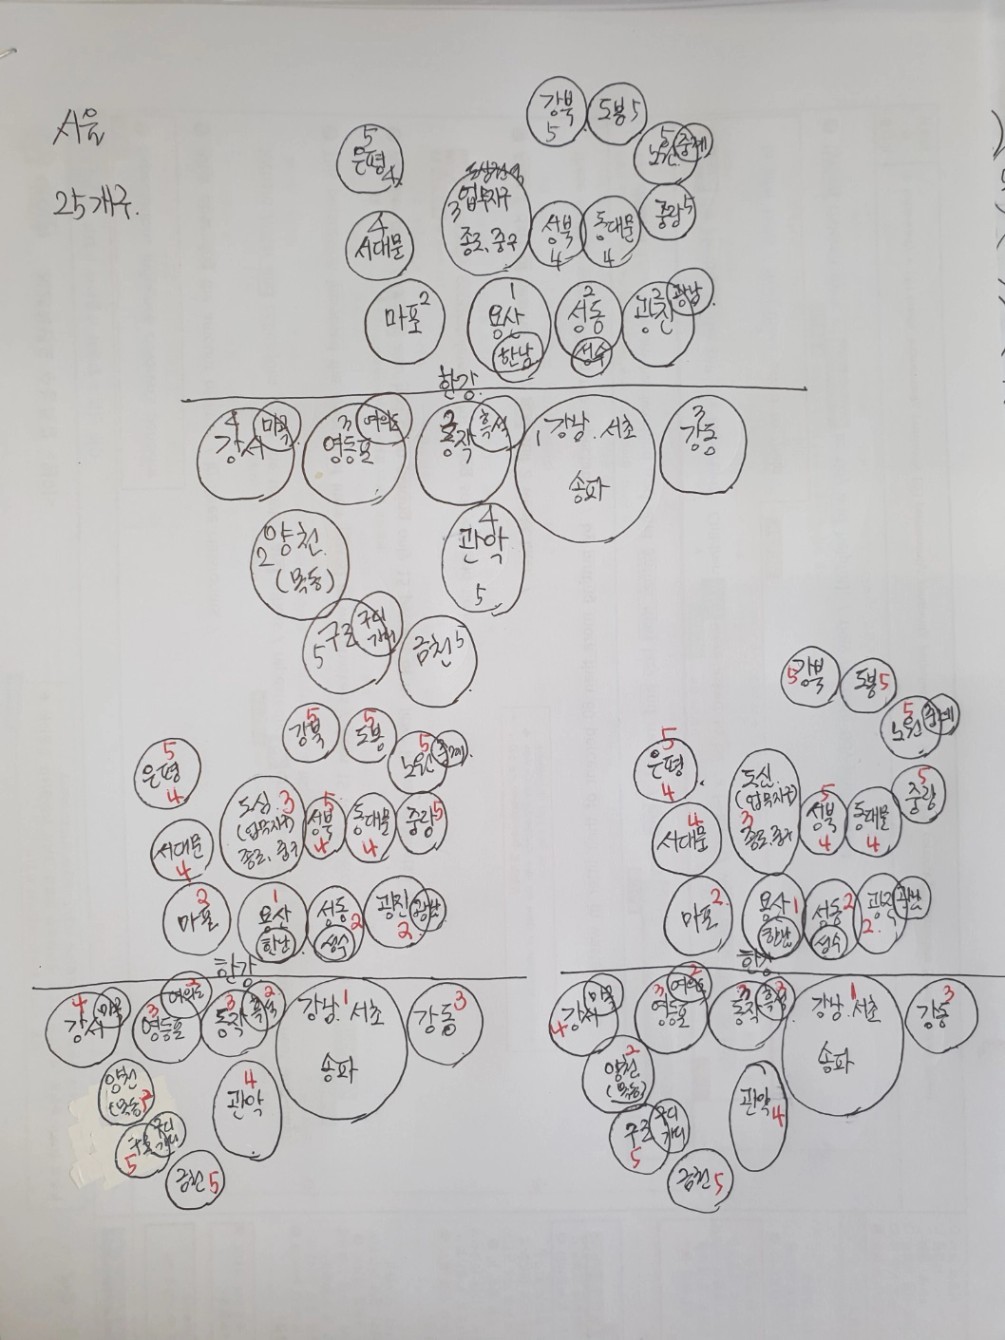 서울
25개구.
강북
5
도봉 5
5
노원 중계
5
은평
4
도심
3 업무지구
종로, 중구
성북
4
동대문
4
중랑 5
4
서대문
마포 2
1
용산
한남
2
성동
성수
2
광진
광남
한강
4
강서
마곡
3
영등포
여의도
동작
흑석
1 강남. 서초
송파
3
강동
2 양천.
(목동)
4
관악
5
5 구로
구디
가디
금천 5
5
강북
5
도봉
5
노원 중계
5
은평
4
도심. 3
(업무지구)
종로, 중구
5
성북
4
동대문
4
중랑 5
서대문
4
2
마포
1
용산
한남
성동 2
성수
광진
2
광남
한강
4
강서
마곡
3
영등포
여의도
2
3
동작
흑석
2
강남. 1 서초
송파
강동 3
양천
(목동) 2
구로
5
구디
가디
4
관악
금천 5
5 강북
도봉 5
5
노원 중계
5
은평
4
4
서대문
도심.
(업무지구)
3
종로. 중구
5
성북
4
동대문
4
5
중랑
마포 2.
용산 1
한남
성동 2
성수
광진
2.
광남
한강
4 강서
마곡
3
영등포
여의도
2
3
동작
흑석
2
강남. 1 서초
송파
3
강동
2
양천
(목동)
구로
5
구디
가디
관악
4
금천 5